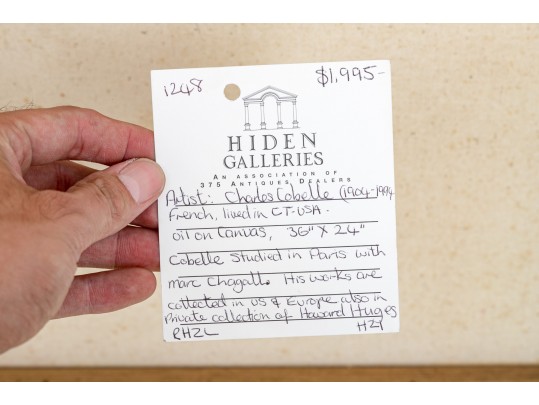 1248 $1,995-
HIDEN
GALLERIES
AN ASSOCIATION OF
375 ANTIQUES DEALERS
Artist: Charles Cobelle (1904-1994
French, lived in CT-USA.
oil on Canvas, 36" X 24"
Cobelle Studied in Paris with
marc Chagall. His works are
collected in US & Europe also in
Private collection of Howard Huges